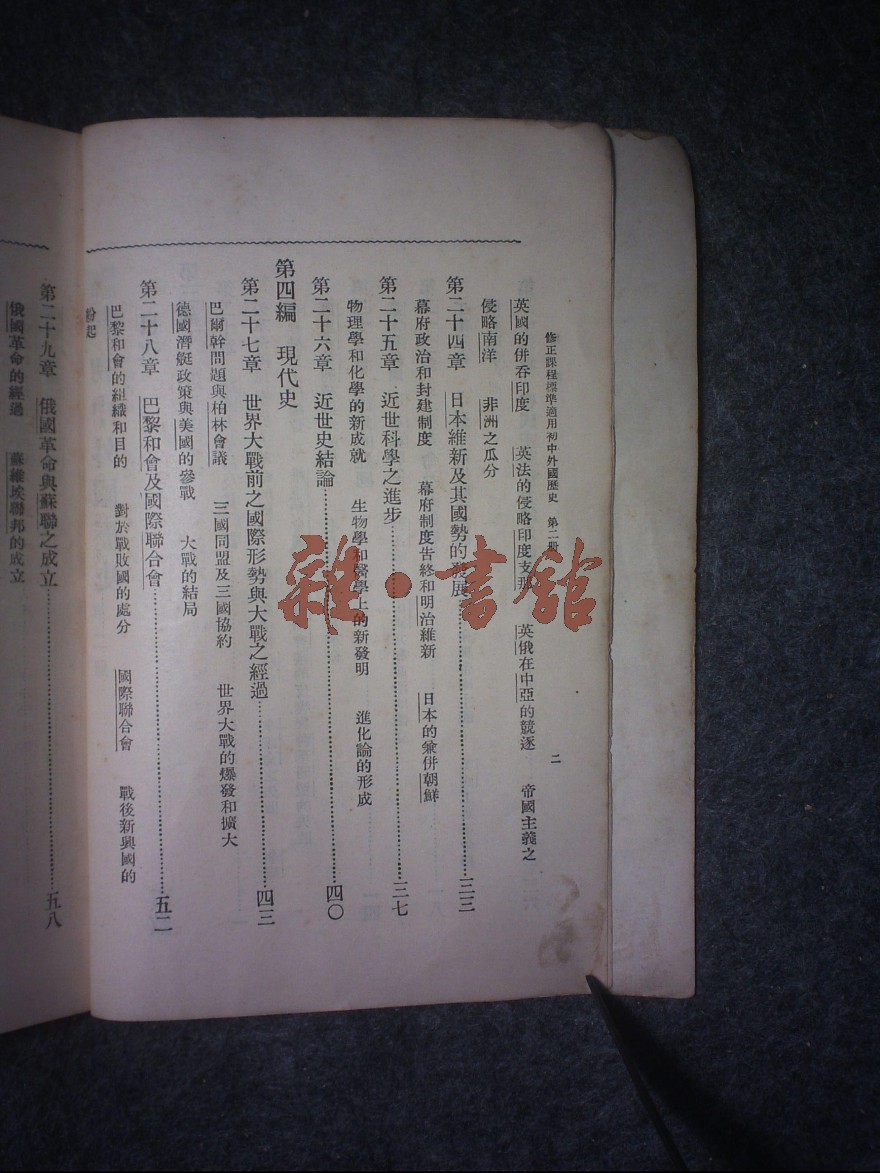 修正課程標準適用初中外國歷史 第二冊 二
英國的併吞印度 英法的侵略印度支那 英俄在中亞的競逐 帝國主義之
侵略南洋 非洲之瓜分
第二十四章 日本維新及其國勢的發展……三三
幕府政治和封建制度 幕府制度告終和明治維新 日本的兼併朝鮮
第二十五章 近世科學之進步……三七
物理學和化學的新成就 生物學和醫學上的新發明 進化論的形成
第二十六章 近世史結論……四〇
第四編 現代史
第二十七章 世界大戰前之國際形勢與大戰之經過……四三
巴爾幹問題與柏林會議 三國同盟及三國協約 世界大戰的爆發和擴大
德國潛艇政策與美國的參戰 大戰的結局
第二十八章 巴黎和會及國際聯合會……五二
巴黎和會的組織和目的 對於戰敗國的處分 國際聯合會 戰後新興國的
紛起
第二十九章 俄國革命與蘇聯之成立……五八
俄國革命的經過 蘇維埃聯邦的成立
雜·書館